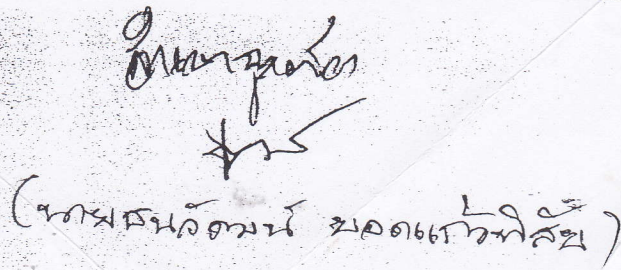 สำเนาถูกต้อง
(นายธนวัฒน์ ยอดแก้วพิสัย)